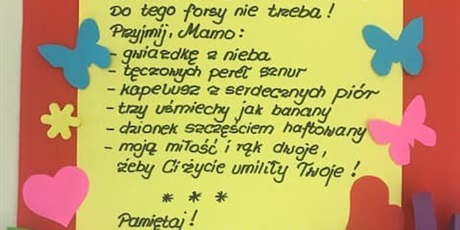 Do tego forsy nie trzeba!
Przyjmij, Mamo:
- gwiazdkę z nieba
- tęczowych pereł sznur
- kapelusz z serdecznych piór
- trzy uśmiechy jak banany
- dzionek szczęściem haftowany
- moją miłość i rąk dwoje,
żeby Ci życie umiliły Twoje!
* * *
Pamiętaj!